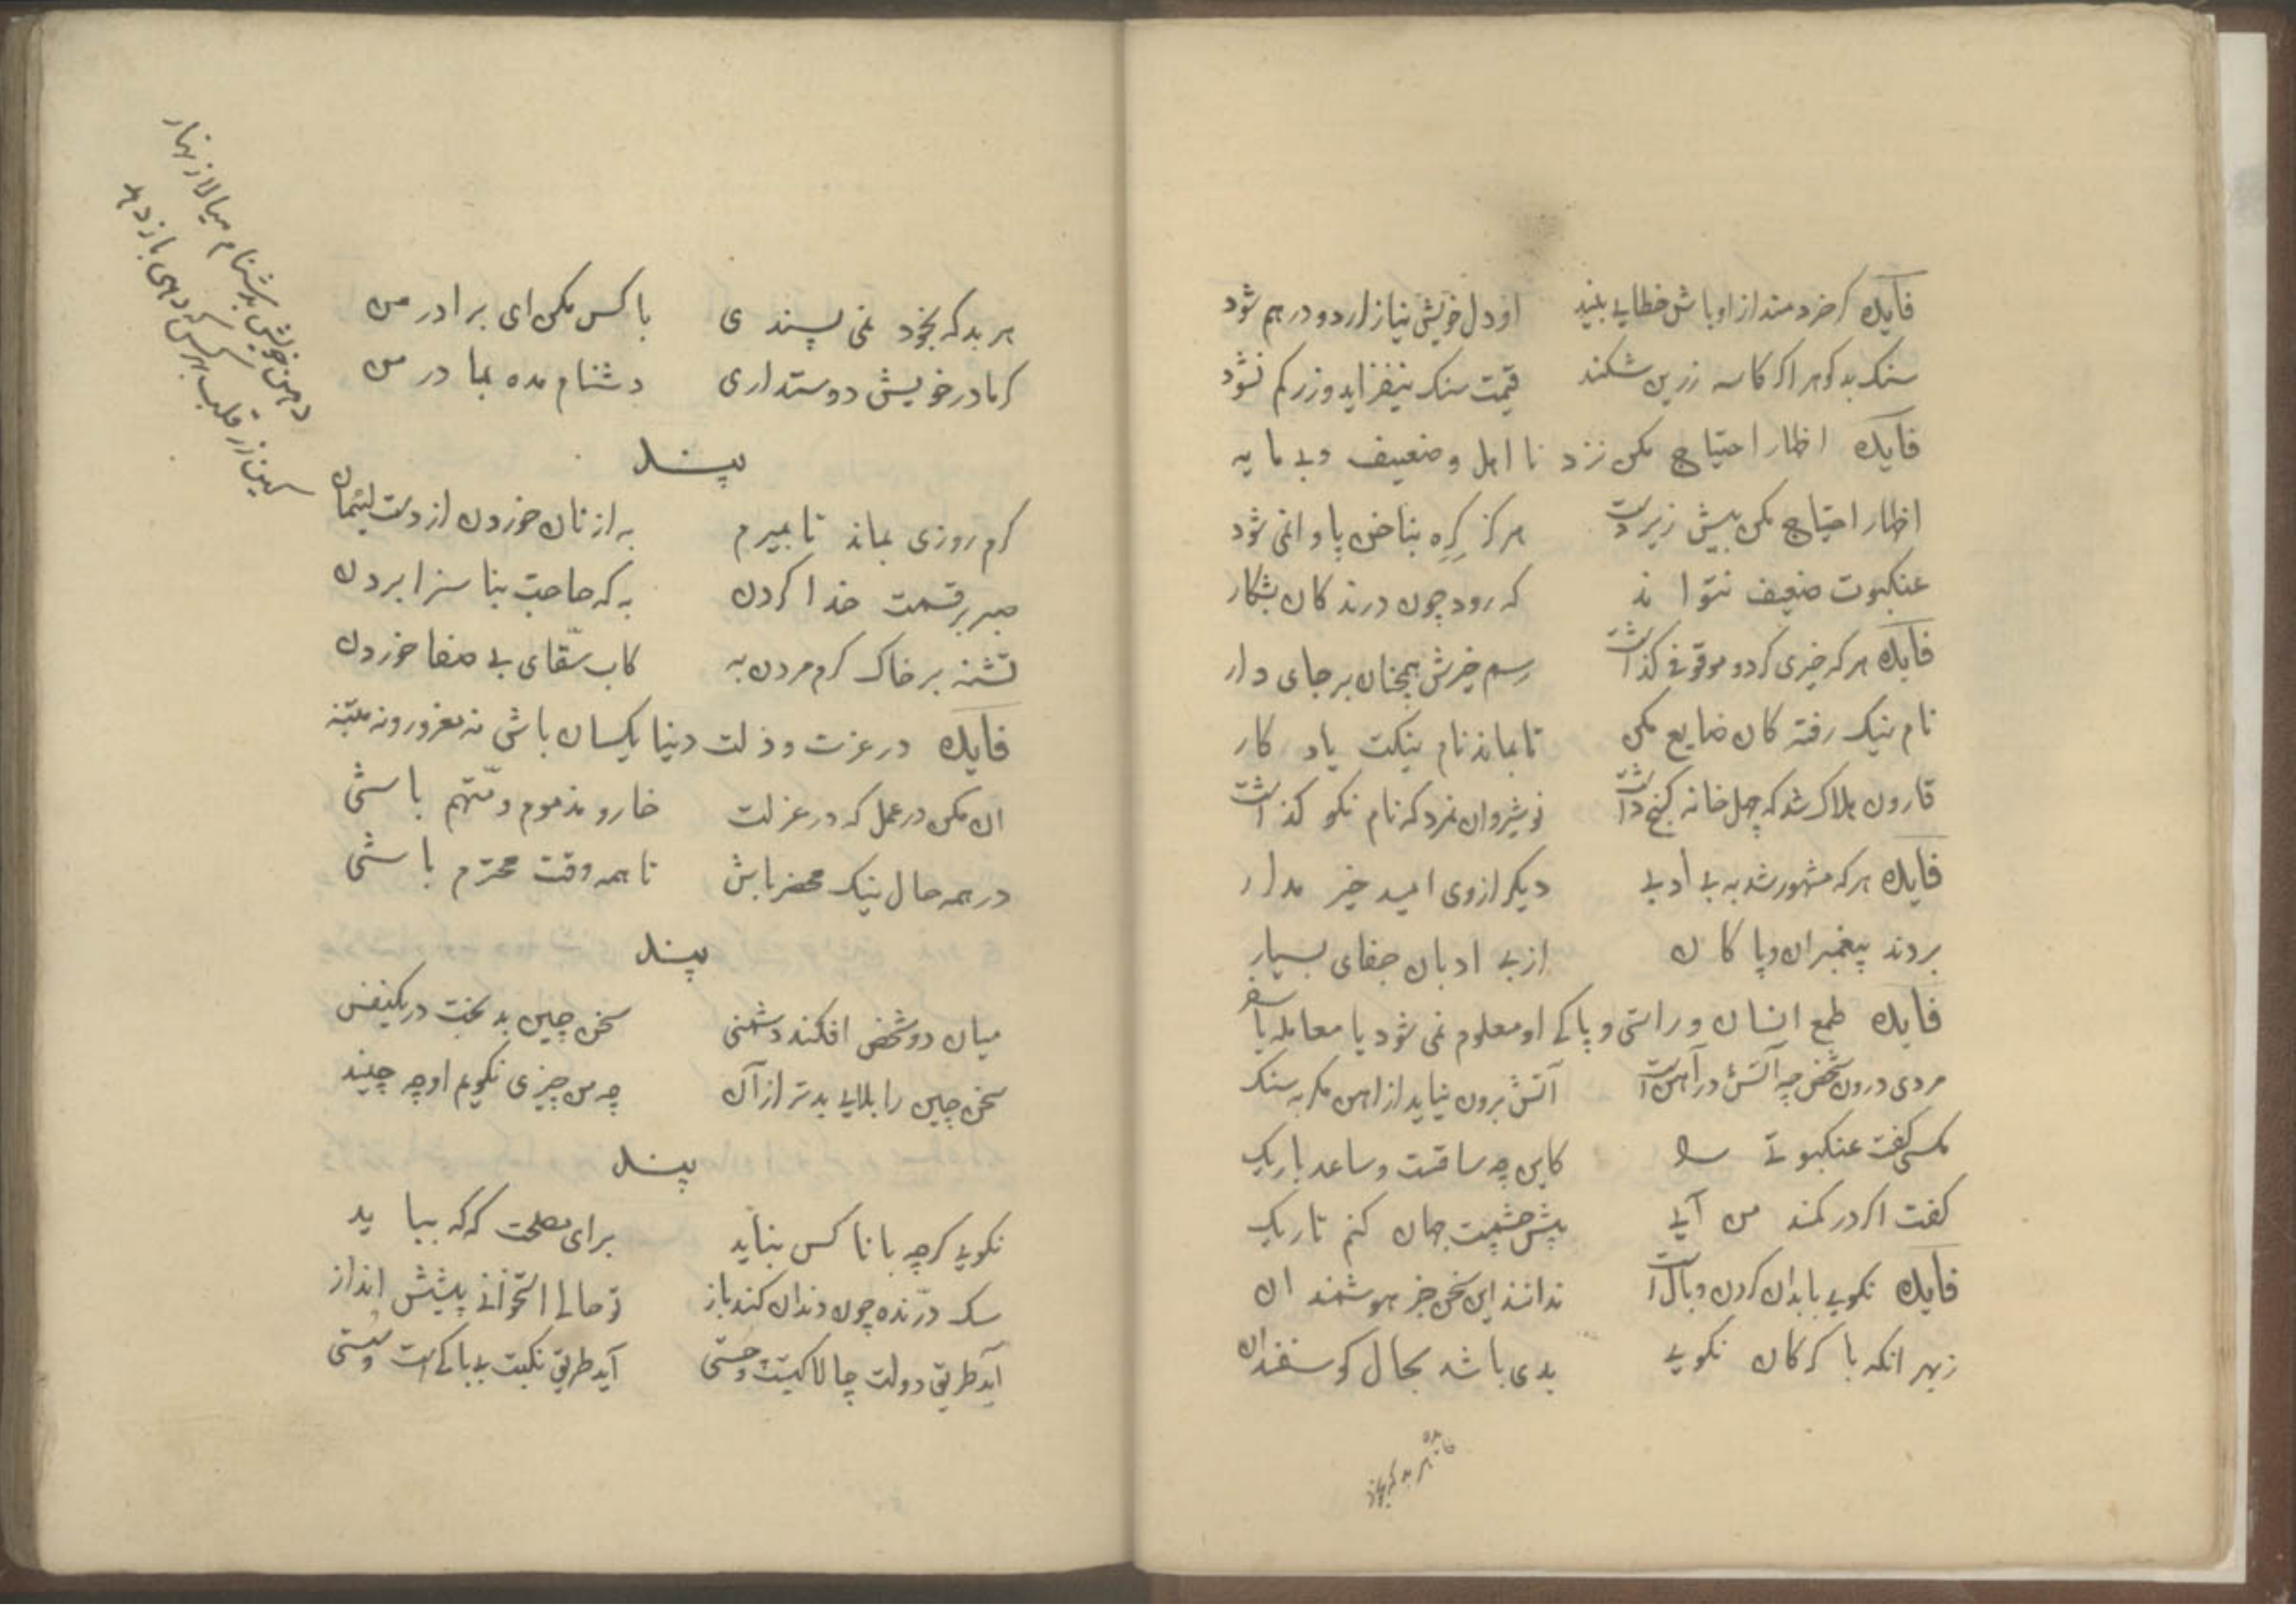 فایده گر خردمند از اوباش خطایی بیند او دل خویش نیازارد و درهم شود
سنک بد کوهر اکر کاسه زرین شکند قیمت سنک نیفزاید و زر کم نشود
فایده اظهار احتیاج مکن نزد نا اهل و ضعیف و بی مایه
اظهار احتیاج مکن پیش زیردست هرکز کره بناخن پا وا نمی شود
عنکبوت ضعیف نتواند که رود چون درندکان بشکار
فایده هرکه خیری کرد و موقوفی کذاشت رسم خیرش همچنان برجای دار
نام نیک رفتکان ضایع مکن تا بماند نام نیکت یادکار
قارون هلاک شد که چهل خانه کنج داشت نوشیروان نمرد که نام نکو کذاشت
فایده هرکه مشهور شد به بی ادبی دیکر از وی امید خیر مدار
بردند پیغمبران و پاکان از بی ادبان جفای بسیار
فایده طمع انسان و راستی و پاکی او معلوم نمی شود یا معامله یا سفر
مردی درون شخص چه آتش در آهن است آتش برون نیاید از اهن مکر به سنک
مکسی کفت عنکبوتی را کاین چه ساقست و ساعد باریک
کفت اکر در کمند من آیی پیش چشمت جهان کنم تاریک
فایده نکویی با بدان کردن وبال است ندانند این سخن جز هوشمندان
زبهر انکه با کرکان نکویی بدی باشد بحال کوسفندان
هر بد که بخود نمی پسندی با کس مکن ای برادر من
کر مادر خویش دوستداری دشنام مده بمادر من
دهن خویش بدشنام میالا زنهار
کین زر قلب بهر کس که دهی باز دهد
پند
کرم روزی نماند تا بمیرم به از نان خوردن از دست لئیمان
صبر بر قسمت خدا کردن به که حاجت بناسزا بردن
تشنه بر خاک کرم مردن به کاب سقّای بی صفا خوردن
فایده در عزت و ذلت دنیا یکسان باشی نه مغرور و نه
ان مکن در عمل که در عزلت خار و مذموم و متّهم باشی
در همه حال نیک محضر باش تا همه وقت محترم باشی
پند
میان دو شخص افکند دشمنی سخن چین بد بخت در یکنفس
سخن چین را بلایی بدتر از آن چه من چیزی نکویم او چه چیند
پند
نکویی کرچه با ناکس نباید برای مصلحت که که بباید
سک درّنده چون دندان کند باز تو حالی استخوانی پیشش انداز
آید طریق دولت چالاکیست و چستی آید طریق نکبت بی باکی است و سستی